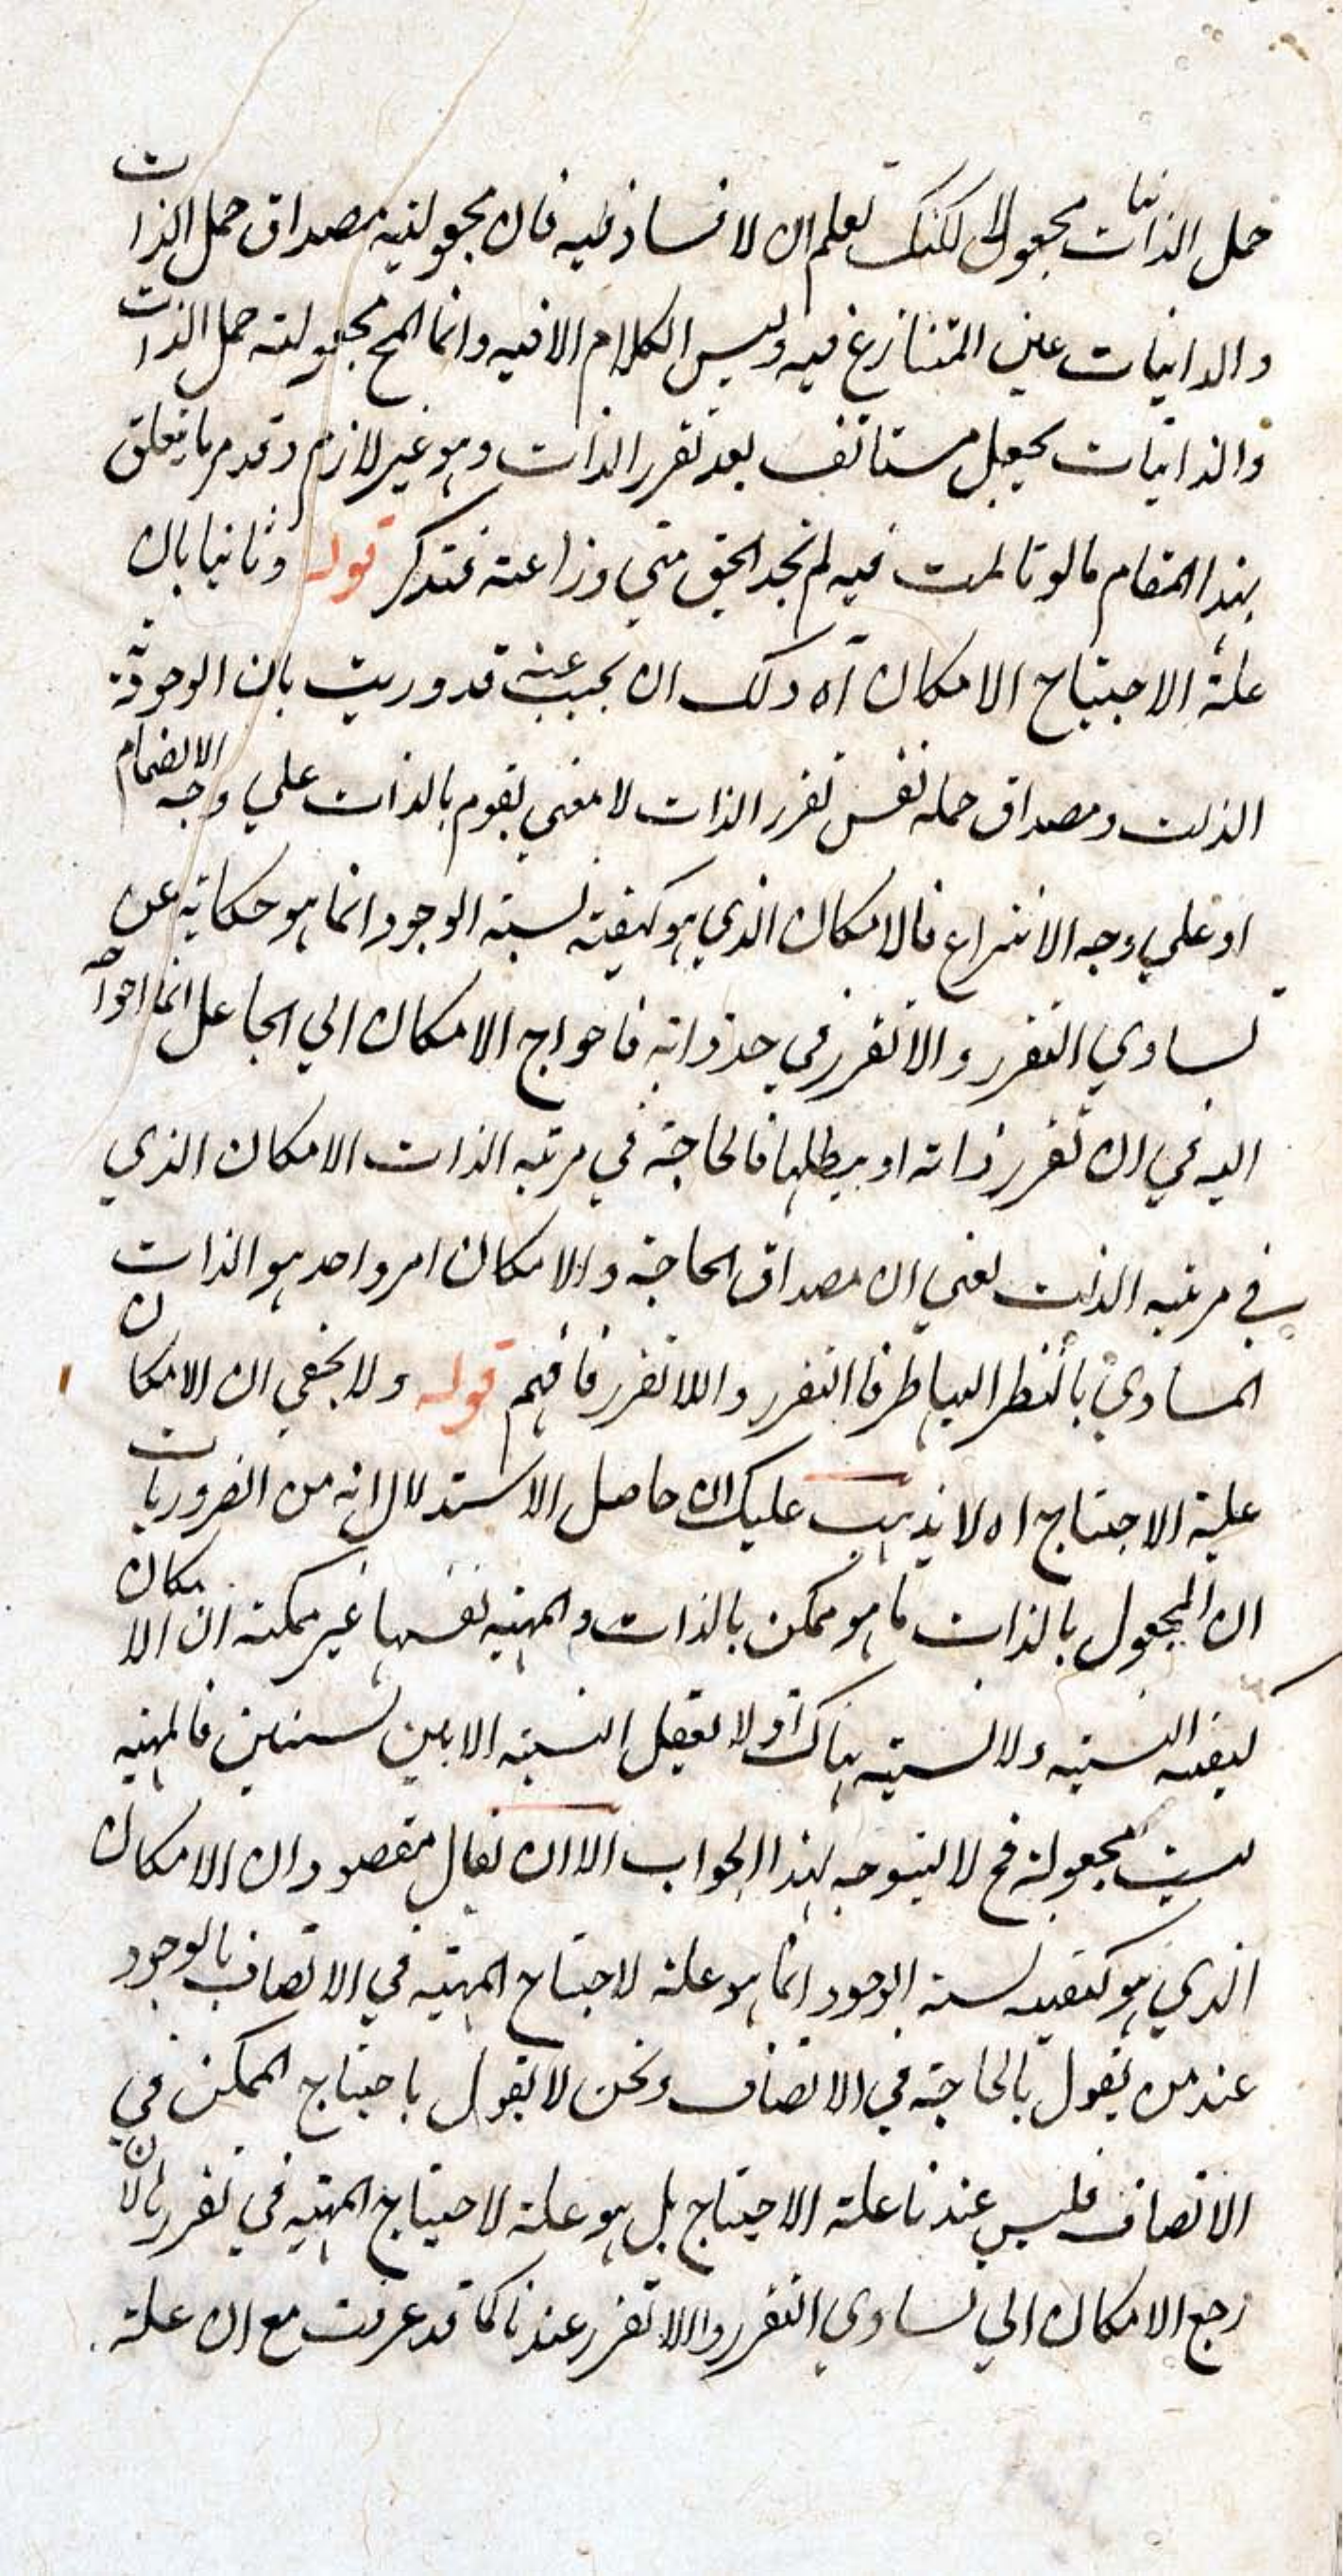 حمل الذاتيات مجعولا لكنك تعلم ان لا فساد فيه فان مجعولية مصداق حمل الذات
والذاتيات عين المتنازع فيه وليس الكلام الا فيه وانما المح مجعولية حمل الذات
والذاتيات بجعل مستانف بعد تقرر الذات وهو غير لازم وقد مر ما يتعلق
بهذا المقام ما لو تاملت فيه لم تجد الحق متجاوزا عنه فتذكر قوله وثانيا بان
علة الاحتياج الامكان آه ولك ان تجيب عنه قد دريت بان الوجود
الذات ومصداق حمله نفس تقرر الذات لا معنى يقوم بالذات علي وجه الانضمام
او علي وجه الانتزاع فالامكان الذي هو كيفية نسبة الوجود انما هو حكاية عن
تساوي التقرر والاتقرر في حد ذاته فاحواج الامكان الي الجاعل انما احواجه
اليه في ان تقرر ذاته او يبطلها فالحاجة في مرتبه الذات الامكان الذي
في مرتبه الذات يعني ان مصداق الحاجة والامكان امر واحد هو الذات
المساوي بالنظر اليها طرفا التقرر واللاتقرر فافهم قوله ولا يخفي ان الامكان
علية الاحتياج اه لا يذهب عليك ان حاصل الاستدلال انه من الضروريات
ان المجعول بالذات ما هو ممكن بالذات والمهية نفسها غير ممكنة ان الامكان
كيفية النسبة ولا نسبة هناك او لا تعقل النسبة الا بين شيئين فالمهية
ليست مجعولة فح لا يتوجه لهذا الجواب الا ان يقال مقصود ان الامكان
الذي هو كيفية نسبة الوجود انما هو علة لاحتياج المهية في الاتصاف بالوجود
عند من يقول بالحاجة في الاتصاف ونحن لا نقول باحتياج الممكن في
الاتصاف فليس عندنا علة الاحتياج بل هو علة لاحتياج المهية في تقررها لان
رجع الامكان الي تساوي التقرر واللاتقرر عندنا كما قد عرفت مع ان علة